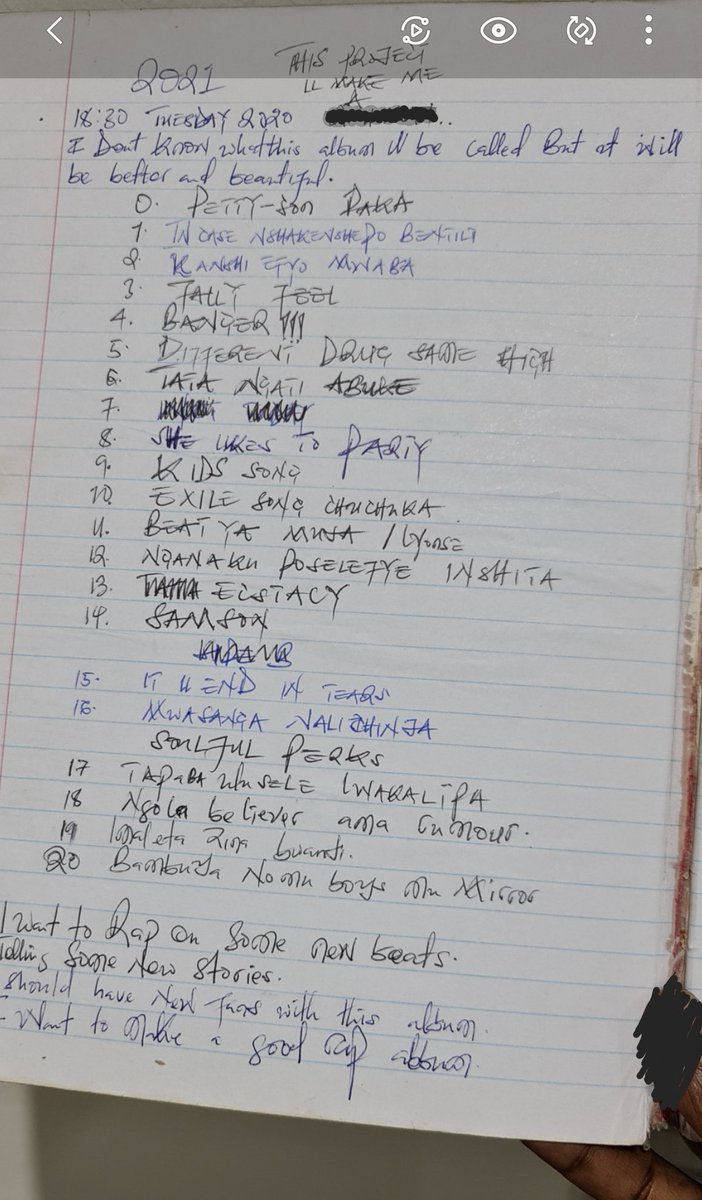 2021
THIS PROJECT
LL MAKE ME
A
18:30 TUESDAY 2020
I Dont know what this album ll be called But it will
be better and beautiful.
0. PETTY-SON PAKA
1. IN CASE NSHAKENSHEPO BENTILI
2. KANSHI EFYO MWABA
3. FALLY FEEL
4. BANGER !!!
5. DIFFERENT DRUG SAME HIGH
6. TATA NGATI ABUKE
7.
8. SHE LIKES TO PARTY
9. KIDS SONG
10. EXILE SONG CHUCHUKA
11. BEAT YA MUSA /
12. NGANAKU POSELEFYE INSHITA
13. ECSTACY
14. SAMSON
15. IT LL END IN TEARS
16. MWASANGA NALICHINJA
SOULFUL PERKS
17 LWAKALIPA
18 Ngola believer ama rumour.
19
20 Bambuya No mu boys mu Mirror
I want to Rap on some new beats.
Telling some New stories.
should have New Fans with this album.
I Want to Make a good rap album.